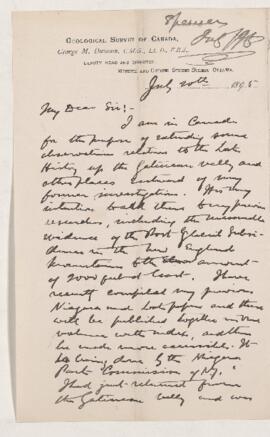 Spencer
July 1895
GEOLOGICAL SURVEY OF CANADA,
George M. Dawson, C.M.G., LL.D., F.R.S.,
DEPUTY HEAD AND DIRECTOR
SUSSEX AND GEORGE STREETS OTTAWA.
July 20th 1895
My Dear Sir:-
I am in Canada
for the purpose of extending some
observations relative to the Lake
History up the Gatineau valley and
other places outward of my
former investigation. It is my
intention to add these to my previous
researches, including the
evidence of the Post Glacial Subsi-
dence in the New England
mountains to the amount
of 2000 feet
I have
recently compiled my previous
Niagara and Lake papers and these
will be published together in one
volume with index, and thus
be made more accessible. It
is being done by the Niagara
Park Commission of N.Y."
I had just returned from
the Gatineau valley and was